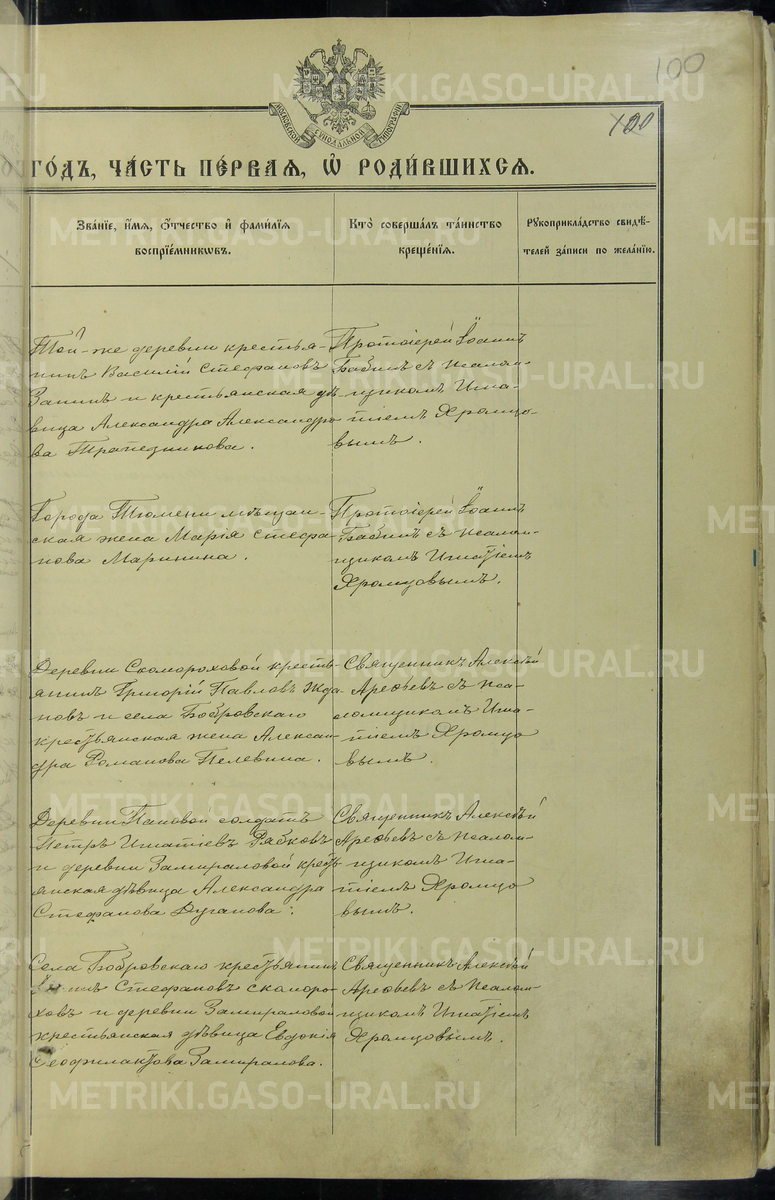 100
100
МОСКОВСКОЙ СѴНОДАЛЬНОЙ ТИПОГРАФІИ
ГО́ДЪ, ЧА́СТЬ ПЕ́РВАЯ, Ѽ РОДИ́ВШИХСЯ.
Зва́нїе, и҆́мя, ѻ҆́тчество и҆ фами́лїя
воспрїе́мникѡвъ.
Кто̀ соверша́лъ та́инство
креще́нїя.
Рꙋкоприкла́дство свидѣ́-
телей за́писи по жела́нїю.
Той-же деревни крестья-
нинъ Василій Стефановъ
Запинъ и крестьянская дѣ
вица Александра Александро
ва Трапезникова.
Протоіерей Іоаннъ
Бабинъ съ псалом-
щикомъ Игна-
тіемъ Хромцо-
вымъ.
Города Тюмени мѣщан-
ская жена Марія Стефа-
нова Маринина.
Протоіерей Іоаннъ
Бабинъ съ псалом-
щикомъ Игнатіемъ
Хромцовымъ.
Деревни Скомороховой кресть-
янинъ Григорій Павловъ Жда
новъ и села Бобровскаго
крестьянская жена Алексан-
дра Романова Пелевина.
Священникъ Алексѣй
Арефьевъ съ пса-
ломщикомъ Игна-
тіемъ Хромцо
вымъ.
Деревни Пановой солдатъ
Петръ Игнатіевъ Рябковъ
и деревни Замираловой кресть
янская дѣвица Александра
Стефанова Дуганова.
Священникъ Алексѣй
Арефьевъ съ псалом-
щикомъ Игна-
тіемъ Хромцо
вымъ.
Села Бобровскаго крестьянинъ
Стефановъ Скоморо-
ховъ и деревни Замираловой
крестьянская дѣвица Евдокія
Феофилактова Замиралова.
Священникъ Алексѣй
Арефьевъ съ псалом-
щикомъ Игнатіемъ
Хромцовымъ.
METRIKI.GASO-URAL.RU